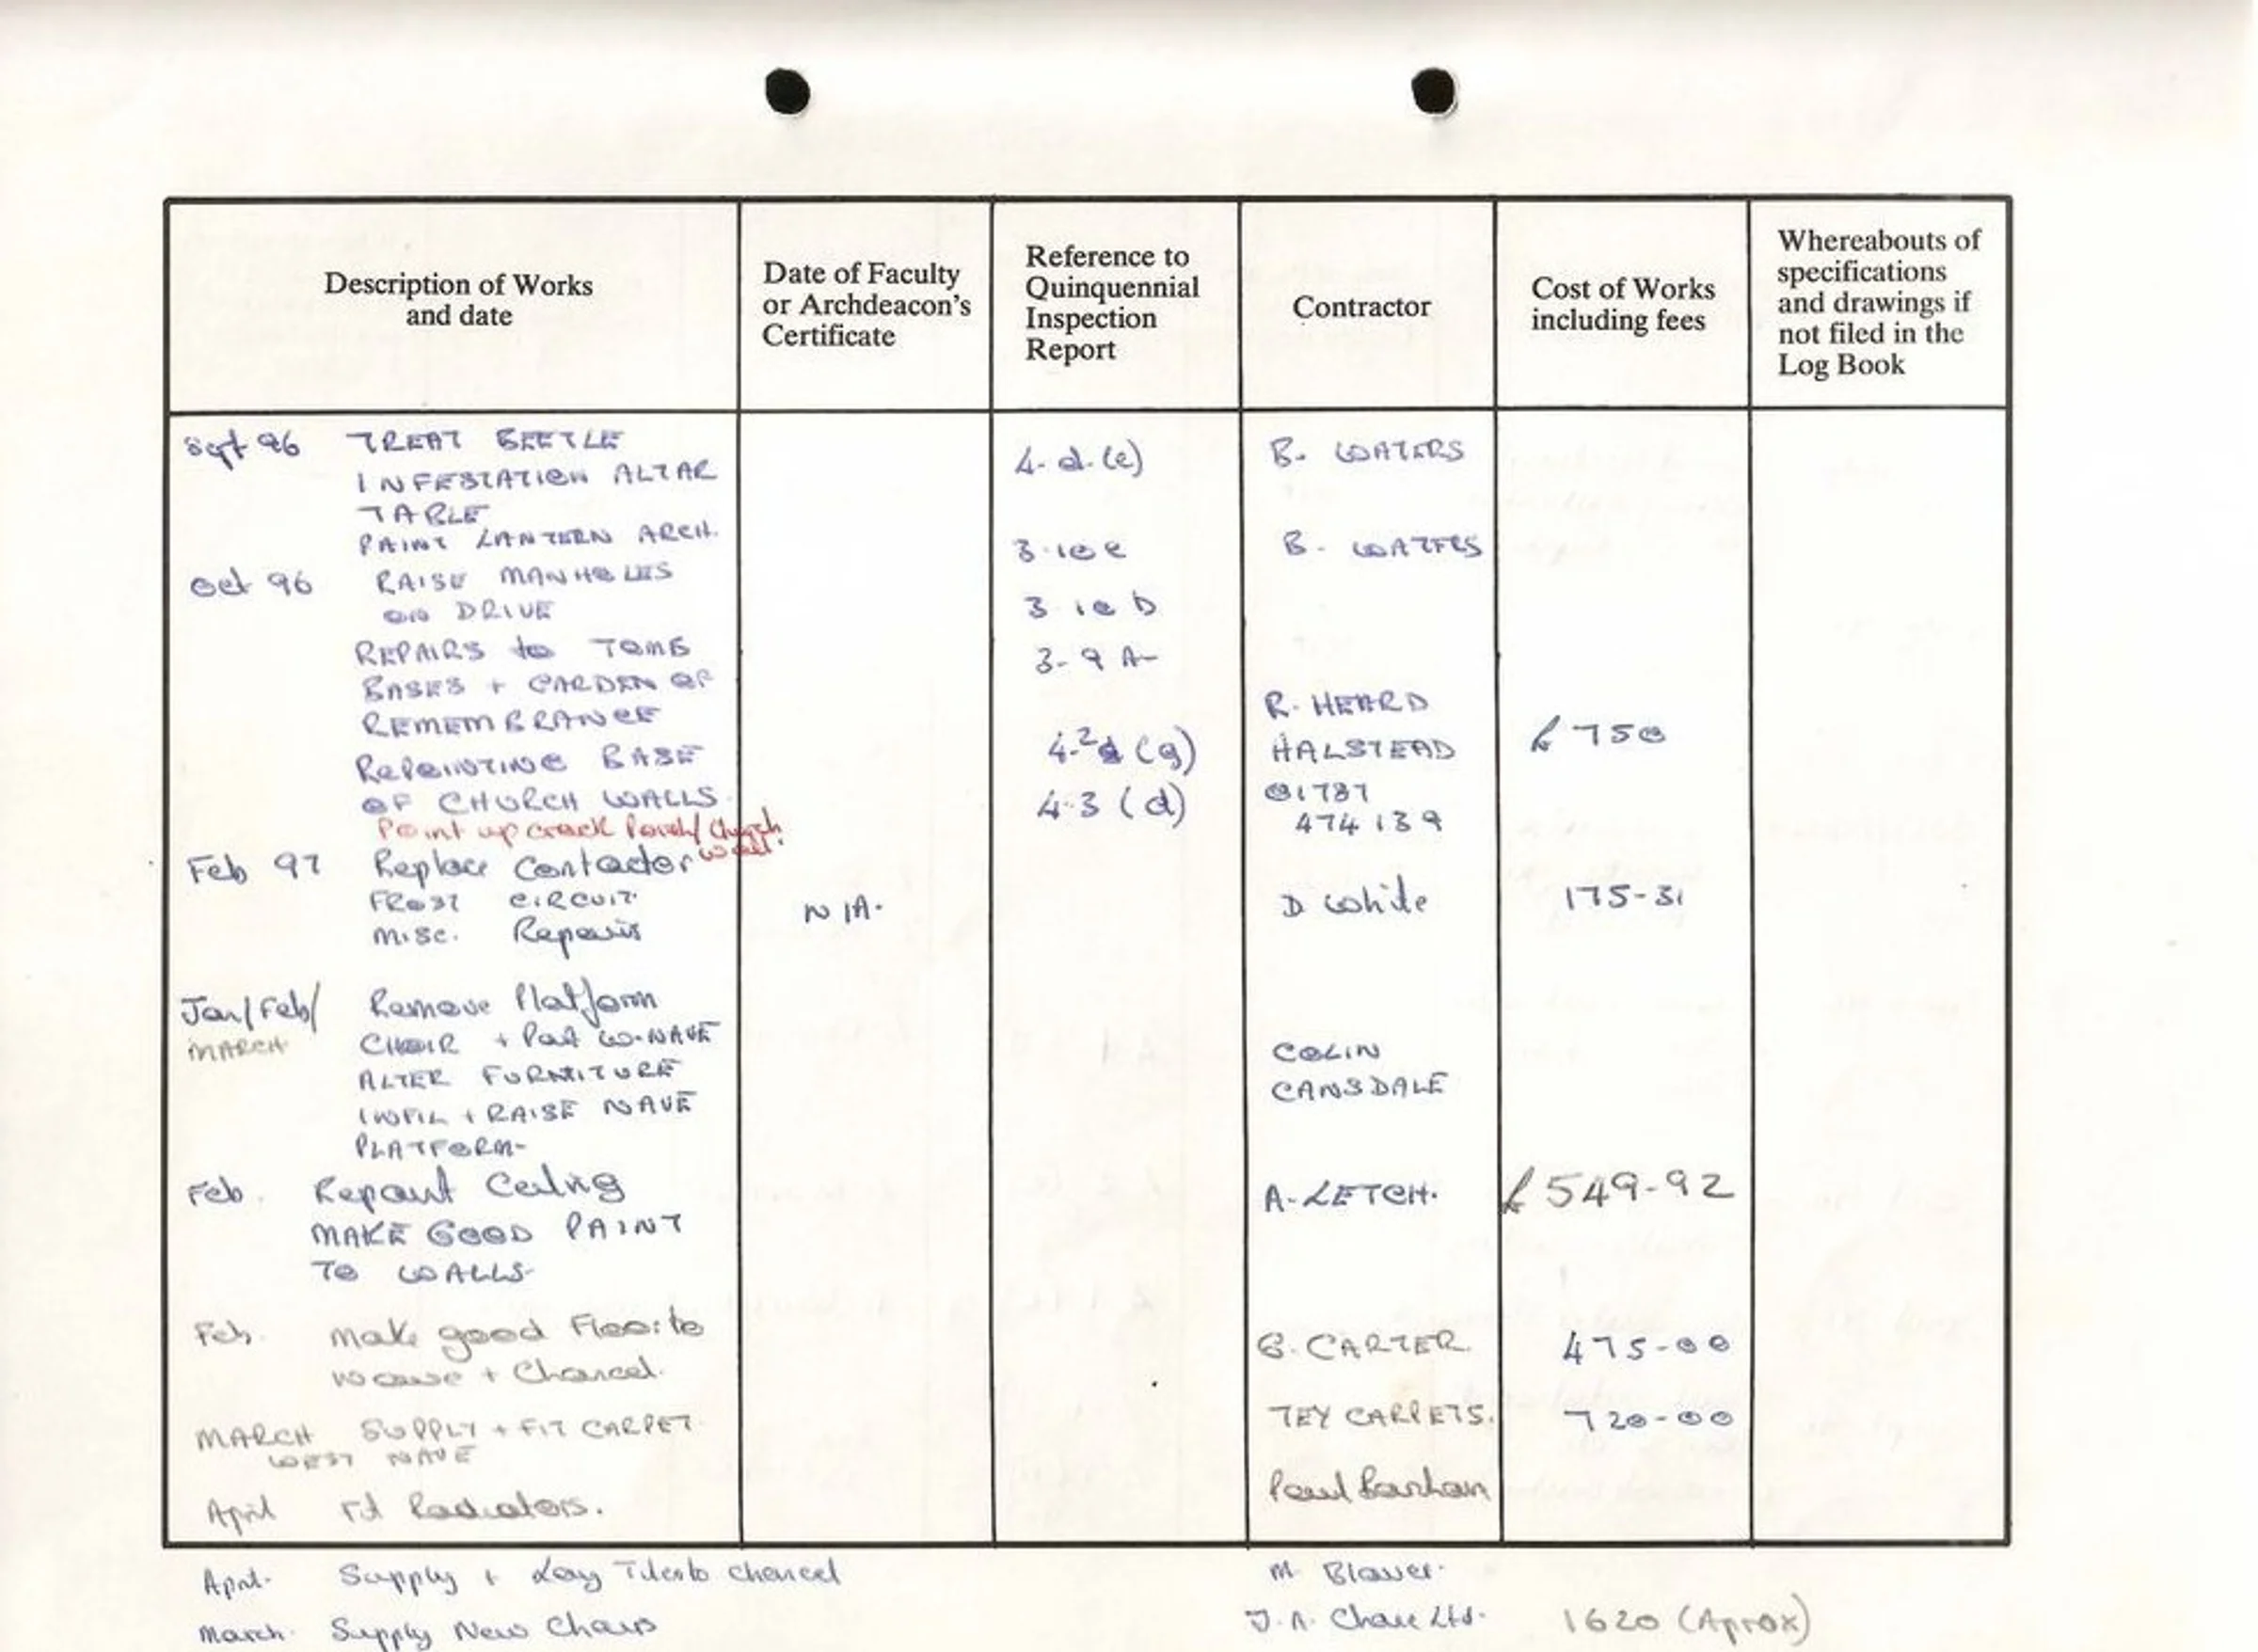 Description of Works
and date
Date of Faculty
or Archdeacon's
Certificate
Reference to
Quinquennial
Inspection
Report
Contractor
Cost of Works
including fees
Whereabouts of
specifications
and drawings if
not filed in the
Log Book
Sept 96 TREAT BEETLE 4.d.(e) B. WATERS
INFESTATION ALTAR
TABLE
PAINT LANTERN ARCH. 3.10 e B. WATERS
Oct 96 RAISE MANHOLES
ON DRIVE 3 10 D
REPAIRS to TOMB 3-9 A-
BASES + GARDEN OF
REMEMBRANCE R. HEARD
REPOINTING BASE 4.2d (g) HALSTEAD £750
OF CHURCH WALLS. 4.3 (d) 01787
Point up crack Porch/Church 474139
wall.
Feb 97 Replace Contactor
FROST CIRCUIT. N/A. D White 175-31
Misc. Repairs
Jan/Feb/ Remove Platform
MARCH CHOIR + Part W. NAVE COLIN
ALTER FURNITURE CANSDALE
INFIL + RAISE NAVE
PLATFORM-
Feb. Repaint Ceiling A. LETCH. £549-92
MAKE GOOD PAINT
TO WALLS-
Feb. Make good Floor to G. CARTER. 475-00
Nave + Chancel.
MARCH SUPPLY + FIT CARPET TEY CARPETS. 720-00
WEST NAVE
April Fit Radiators. Paul
April. Supply + Lay Tiles to chancel M.
March. Supply New Chairs J.A. Ltd. 1620 (Aprox)